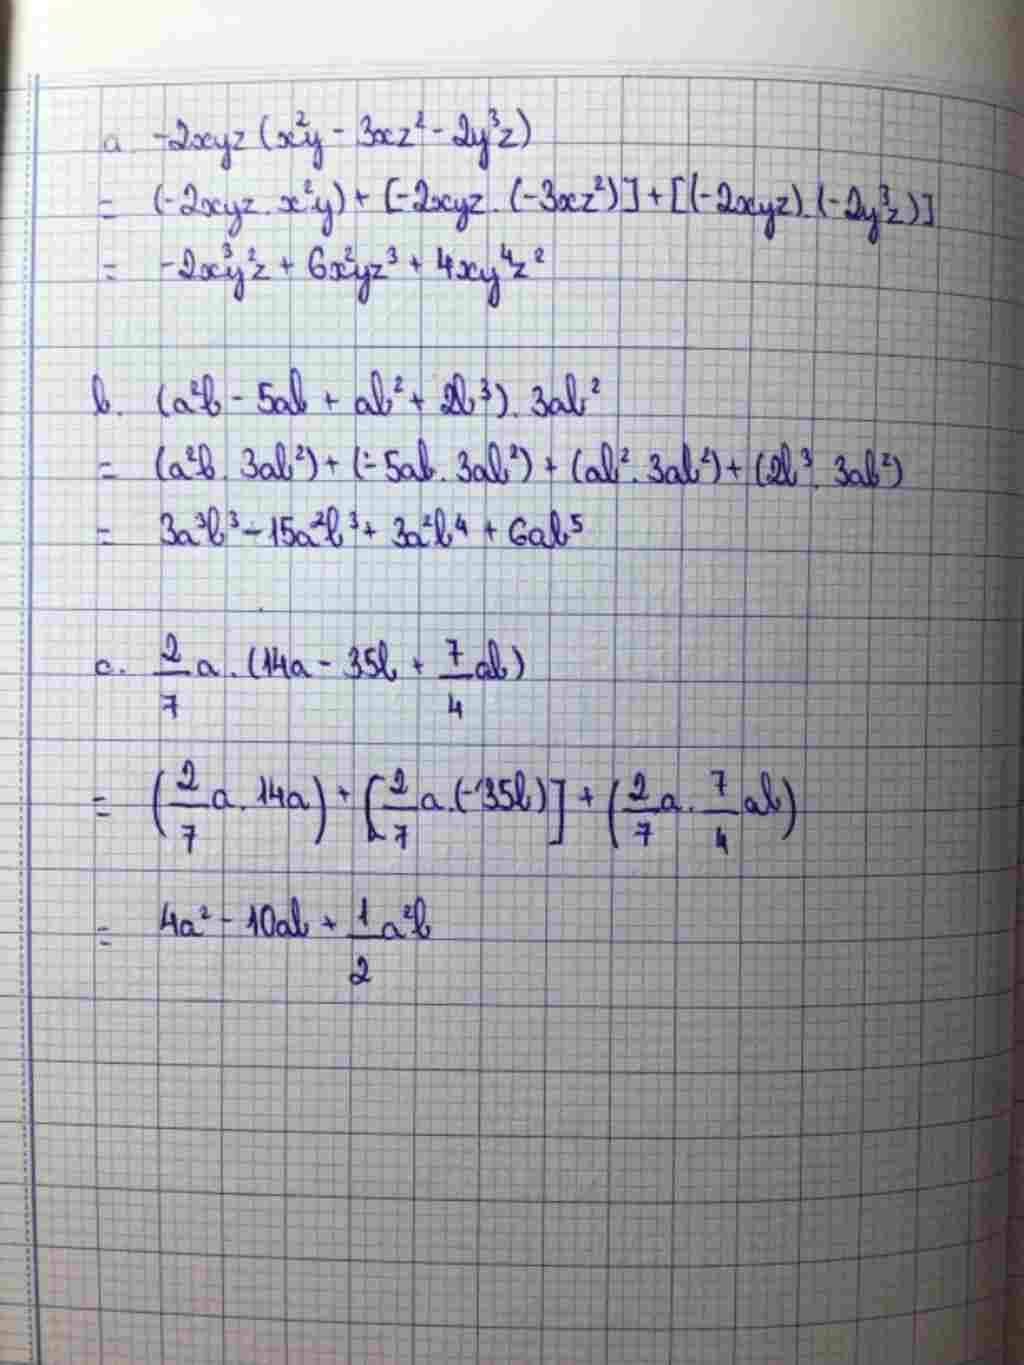 a. -2xyz (x²y - 3xz² - 2y³z)
= (-2xyz . x²y) + [-2xyz . (-3xz²)] + [(-2xyz) . (-2y³z)]
= -2x³y²z + 6x²yz³ + 4xy⁴z²
b. (a²b - 5ab + ab² + 2b³) . 3ab²
= (a²b . 3ab²) + (-5ab . 3ab²) + (ab² . 3ab²) + (2b³ . 3ab²)
= 3a³b³ - 15a²b³ + 3a²b⁴ + 6ab⁵
c. 2/7 a . (14a - 35b + 7/4 ab)
= (2/7 a . 14a) + [2/7 a . (-35b)] + (2/7 a . 7/4 ab)
= 4a² - 10ab + 1/2 a²b